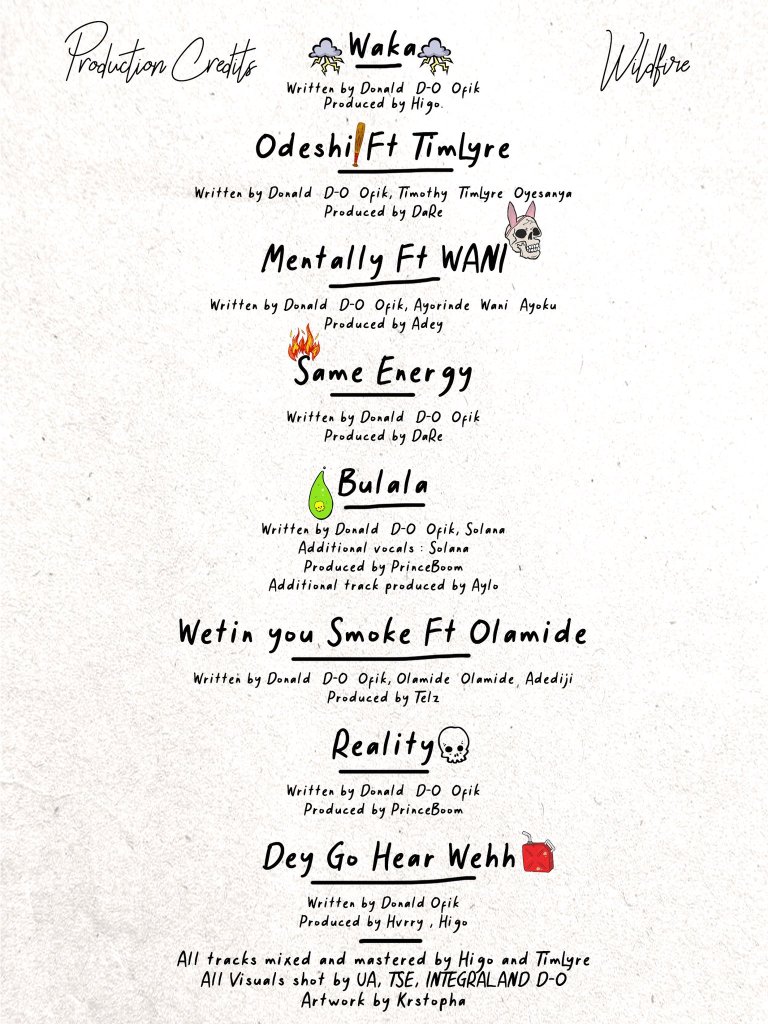 Production Credits
Wildfire
Waka
Written by Donald D-O Ofik
Produced by Higo.
Odeshi Ft TimLyre
Written by Donald D-O Ofik, Timothy TimLyre Oyesanya
Produced by DaRe
Mentally Ft WANI
Written by Donald D-O Ofik, Ayorinde Wani Ayoku
Produced by Adey
Same Energy
Written by Donald D-O Ofik
Produced by DaRe
Bulala
Written by Donald D-O Ofik, Solana
Additional vocals : Solana
Produced by PrinceBoom
Additional track produced by Aylo
Wetin you Smoke Ft Olamide
Written by Donald D-O Ofik, Olamide Olamide, Adediji
Produced by Telz
Reality
Written by Donald D-O Ofik
Produced by PrinceBoom
Dey Go Hear Wehh
Written by Donald Ofik
Produced by Hvrry , Higo
All tracks mixed and mastered by Higo and TimLyre
All Visuals shot by UA, TSE, INTEGRAL AND D-O
Artwork by Krstopha